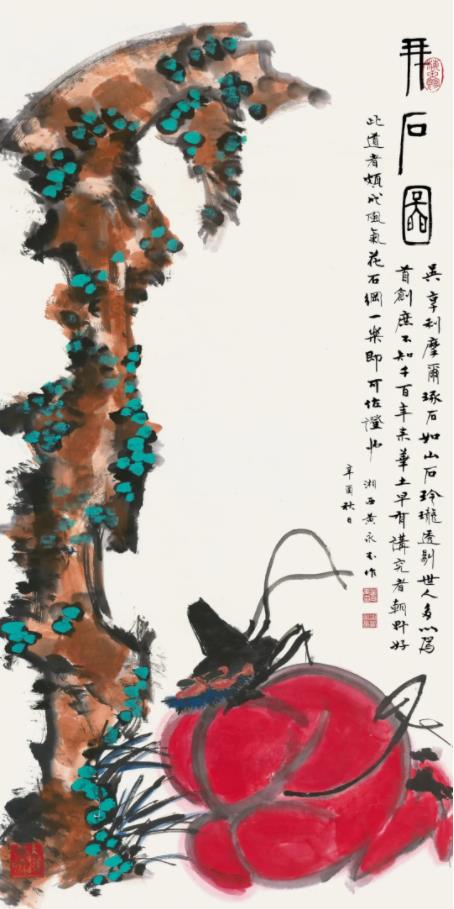 拜石圖
英亨利摩爾琢石如山石玲瓏透剔世人多以爲
首創庶不知千百年来華土早有講究者朝野好
此道者頗成風氣花石綱一案即可佐證也 湘西黄永玉作
辛酉秋日